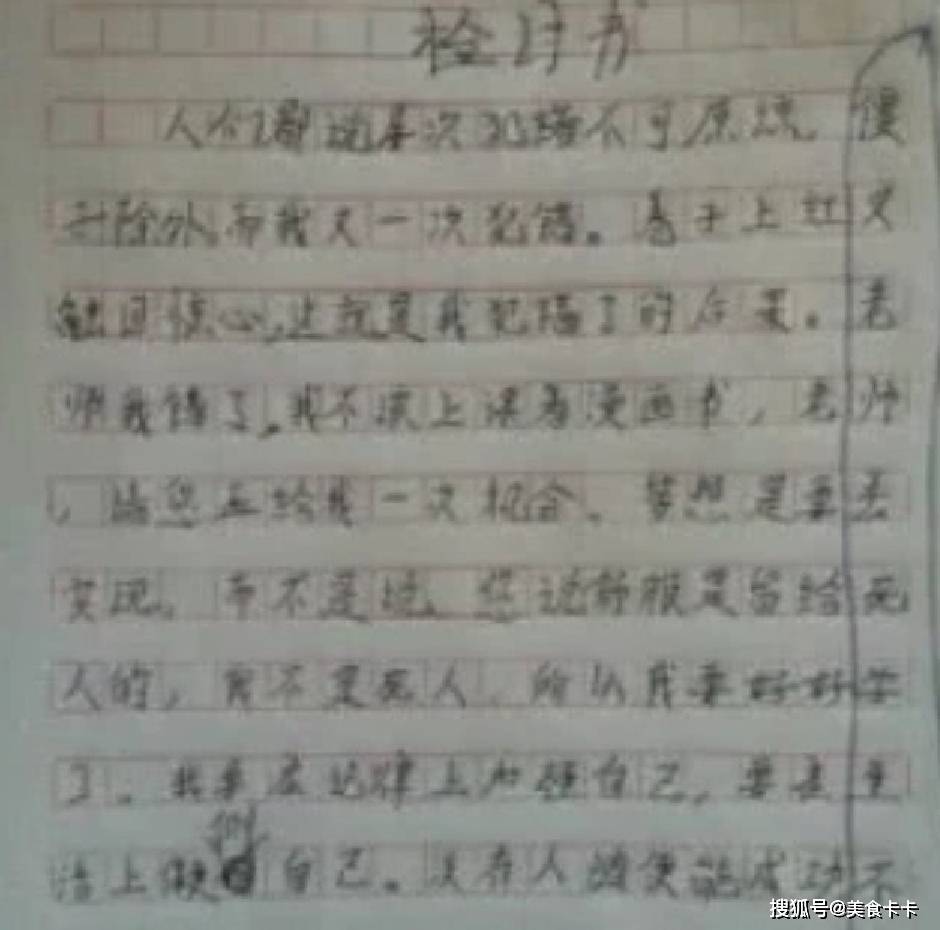 检讨书
人们都说某次犯错不可原谅。傻
子除外，而我又一次犯错。看手上红又
触目惊心，这就是我犯错了的后果。老
师我错了，我不该上课看漫画书，老师
，请您再给我一次机会、梦想是要去
实现，而不是说、您说舒服是留给死
人的，我不是死人，所以我要好好学
习，我要在纪律上加强自己，要在生
活上做到自己。没有人随便能成功不
搜狐号@美食卡卡